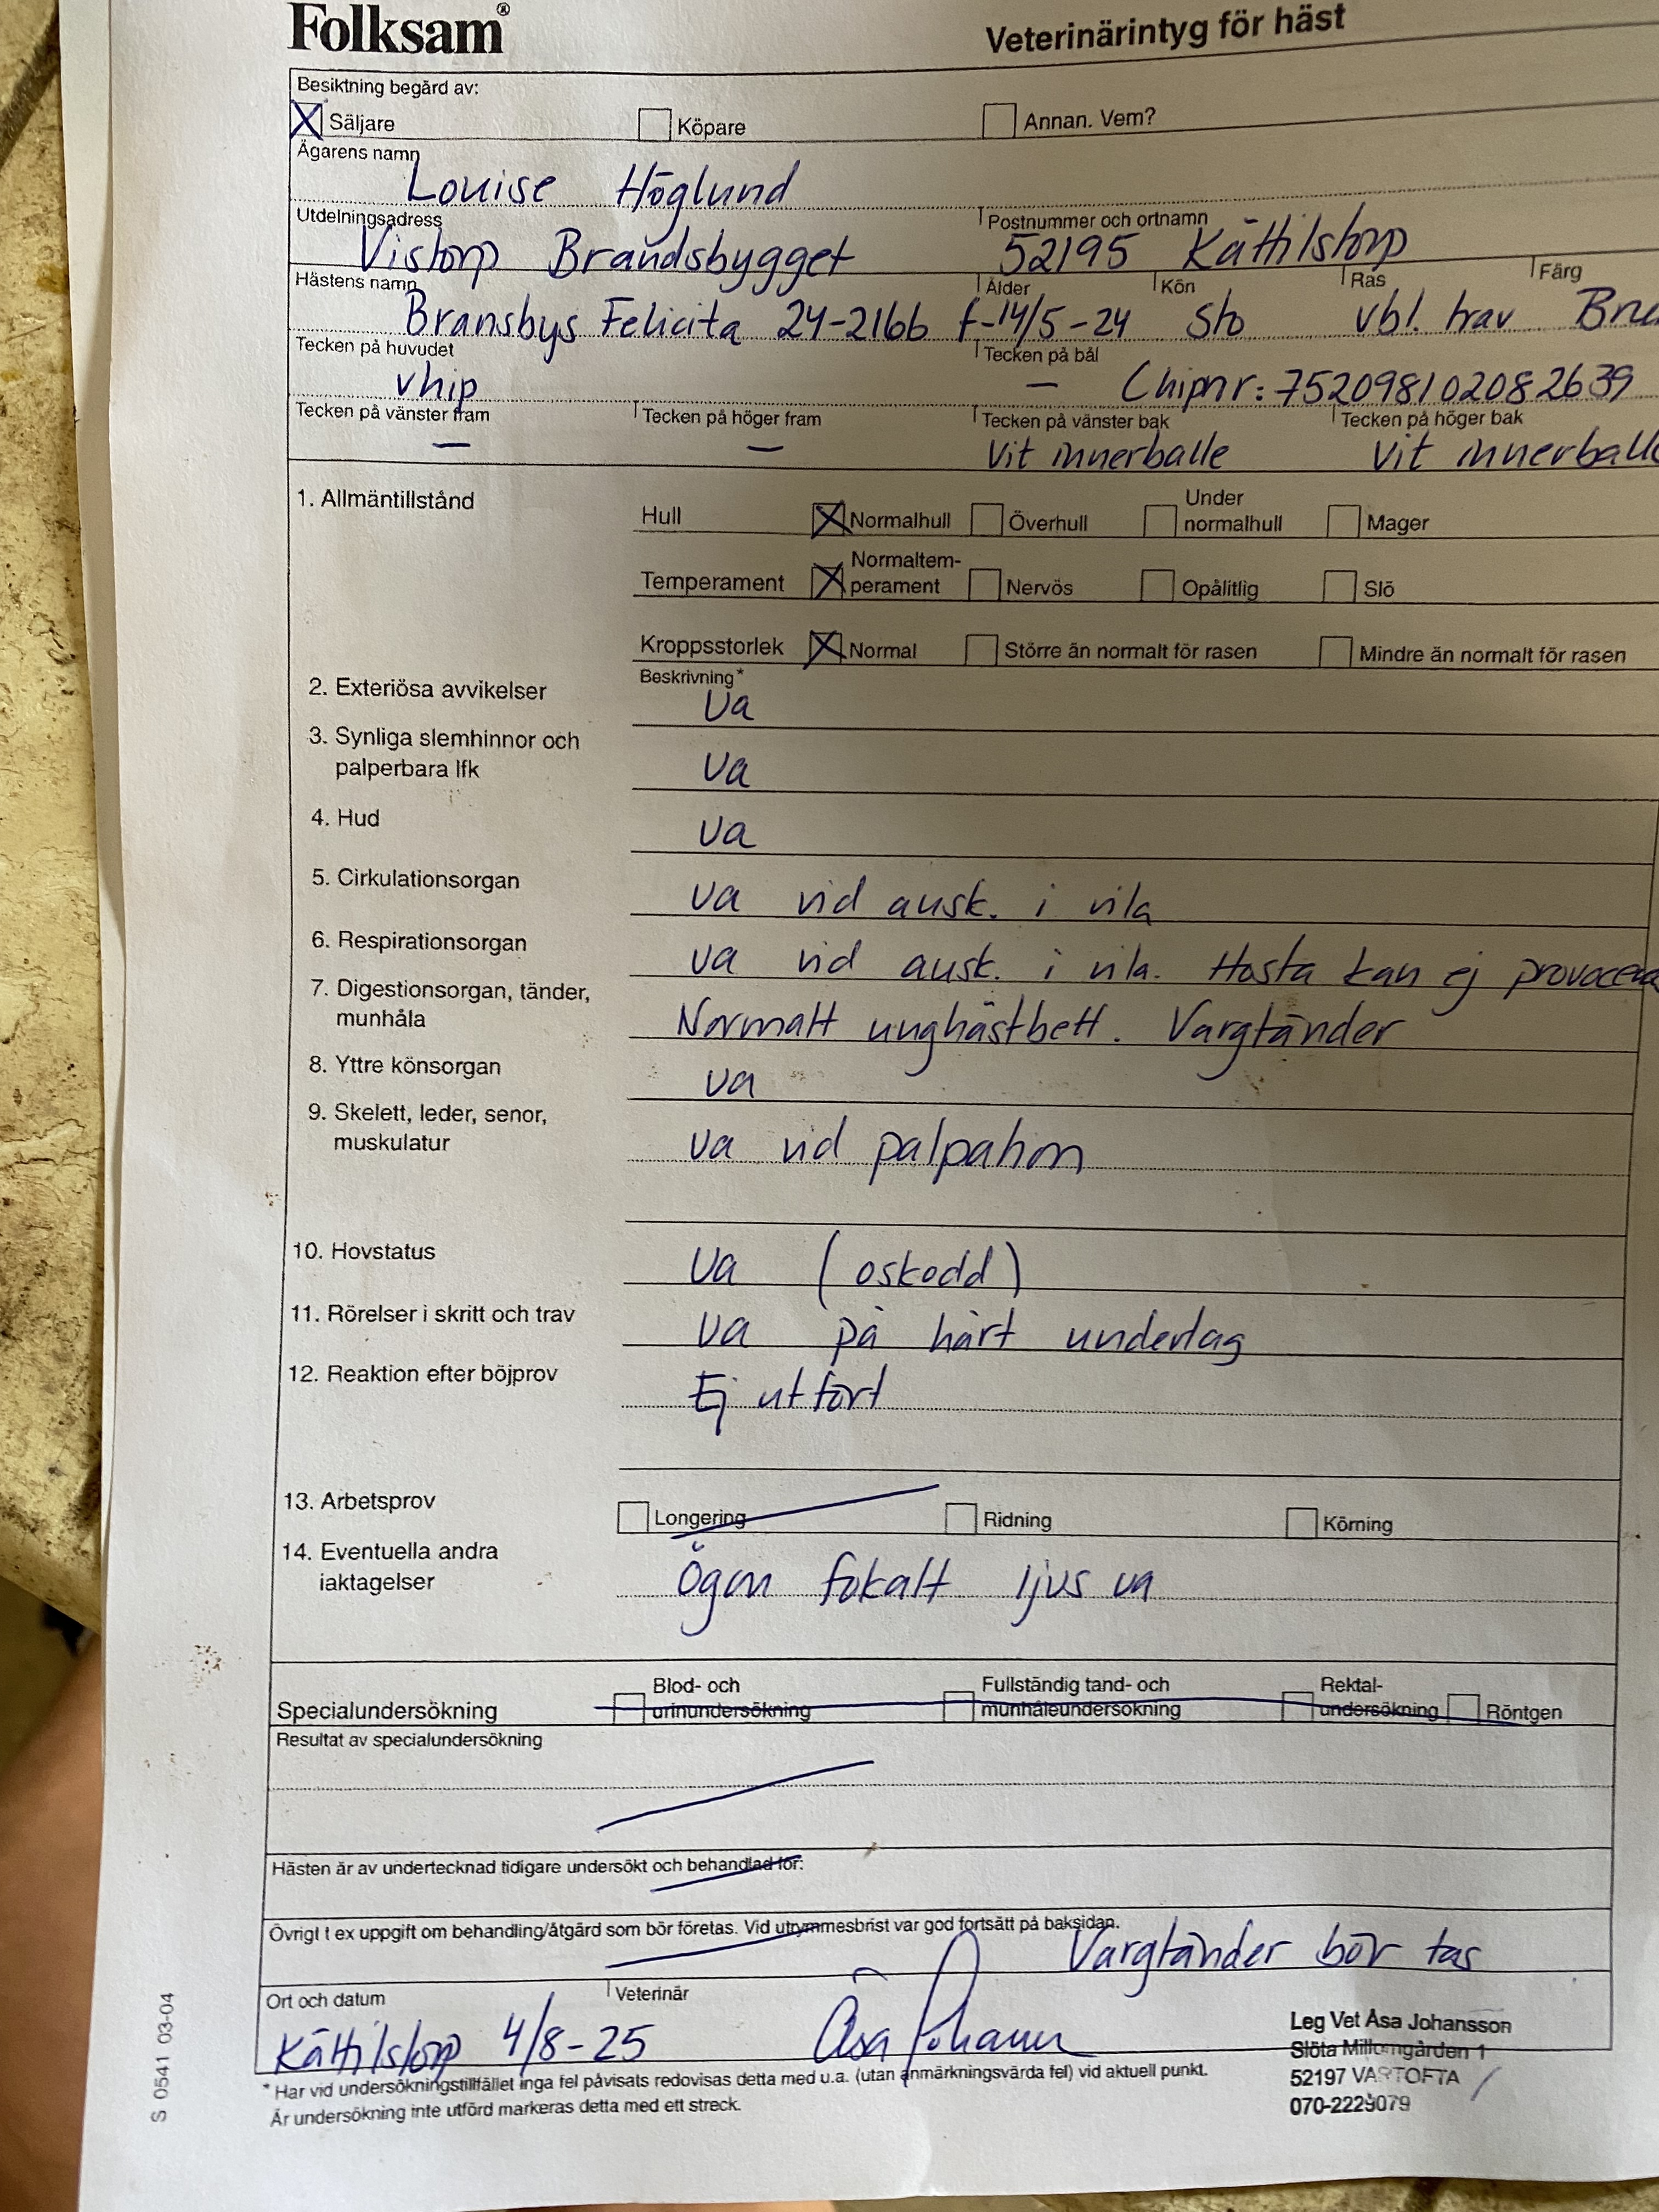 Folksam®
Veterinärintyg för häst
Besiktning begärd av:
Säljare Köpare Annan. Vem?
Ägarens namn
Louise Höglund
Utdelningsadress Postnummer och ortnamn
Vistorp Brandsbygget 52195 Kättilstorp
Hästens namn Ålder Kön Ras Färg
Bransbys Felicita 24-2166 f-14/5-24 Sto vbl. trav
Tecken på huvudet Tecken på bål
vhip — Chipnr: 752098102082639
Tecken på vänster fram Tecken på höger fram Tecken på vänster bak Tecken på höger bak
— — Vit innerballe Vit innerballe
1. Allmäntillstånd Hull Normalhull Överhull Under normalhull Mager
Temperament Normaltem-perament Nervös Opålitlig Slö
Kroppsstorlek Normal Större än normalt för rasen Mindre än normalt för rasen
Beskrivning*
2. Exteriösa avvikelser ua
3. Synliga slemhinnor och
palperbara lfk ua
4. Hud ua
5. Cirkulationsorgan ua vid ausk. i vila
6. Respirationsorgan ua vid ausk. i vila. Hosta kan ej provocera
7. Digestionsorgan, tänder,
munhåla Normalt unghästbett. Vargtänder
8. Yttre könsorgan ua
9. Skelett, leder, senor,
muskulatur ua vid palpation
10. Hovstatus ua (oskodd)
11. Rörelser i skritt och trav ua på hårt underlag
12. Reaktion efter böjprov Ej utfört
13. Arbetsprov Longering Ridning Körning
14. Eventuella andra
iaktagelser Ögon fokalt ljus ua
Specialundersökning Blod- och urinundersökning Fullständig tand- och munhåleundersökning Rektal-undersökning Röntgen
Resultat av specialundersökning
Hästen är av undertecknad tidigare undersökt och behandlad för:
Övrigt t ex uppgift om behandling/åtgärd som bör företas. Vid utrymmesbrist var god fortsätt på baksidan.
Vargtänder bör tas
Ort och datum Veterinär
Kättilstorp 4/8-25 Åsa Johansson
Leg Vet Åsa Johansson
Slöta Millomgården 1
52197 VARTOFTA
070-2229079
* Har vid undersökningstillfället inga fel påvisats redovisas detta med u.a. (utan anmärkningsvärda fel) vid aktuell punkt.
Är undersökning inte utförd markeras detta med ett streck.
S 0541 03-04